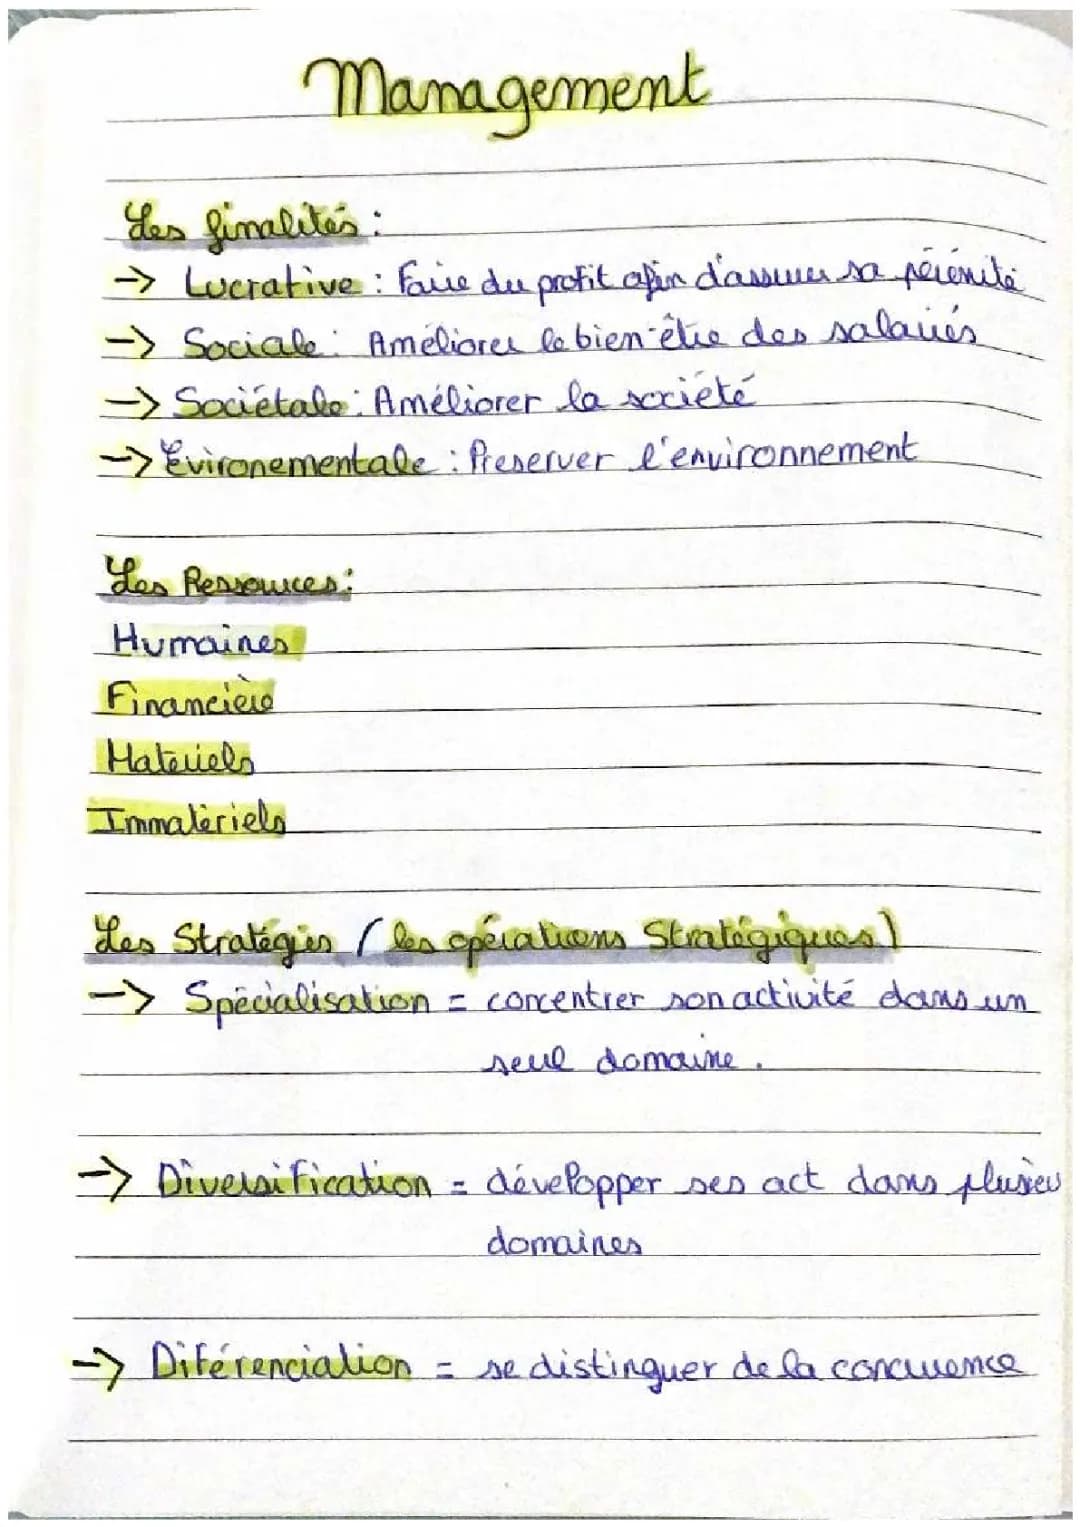 Management
Les finalités :
-> Lucrative : Faire du profit afin d'assurer sa pérénité
-> Sociale : Améliorer le bien-être des salariés
-> Sociétale : Améliorer la société
-> Evironementale : Preserver l'environnement
Les Ressources :
Humaines
Financière
Materiels
Immatériels
Les Stratégies ( les opérations Stratégiques )
-> Spécialisation = concentrer son activité dans un
seul domaine .
-> Diversification = développer ses act dans plusieu
domaines
-> Diférenciation = se distinguer de la concurence